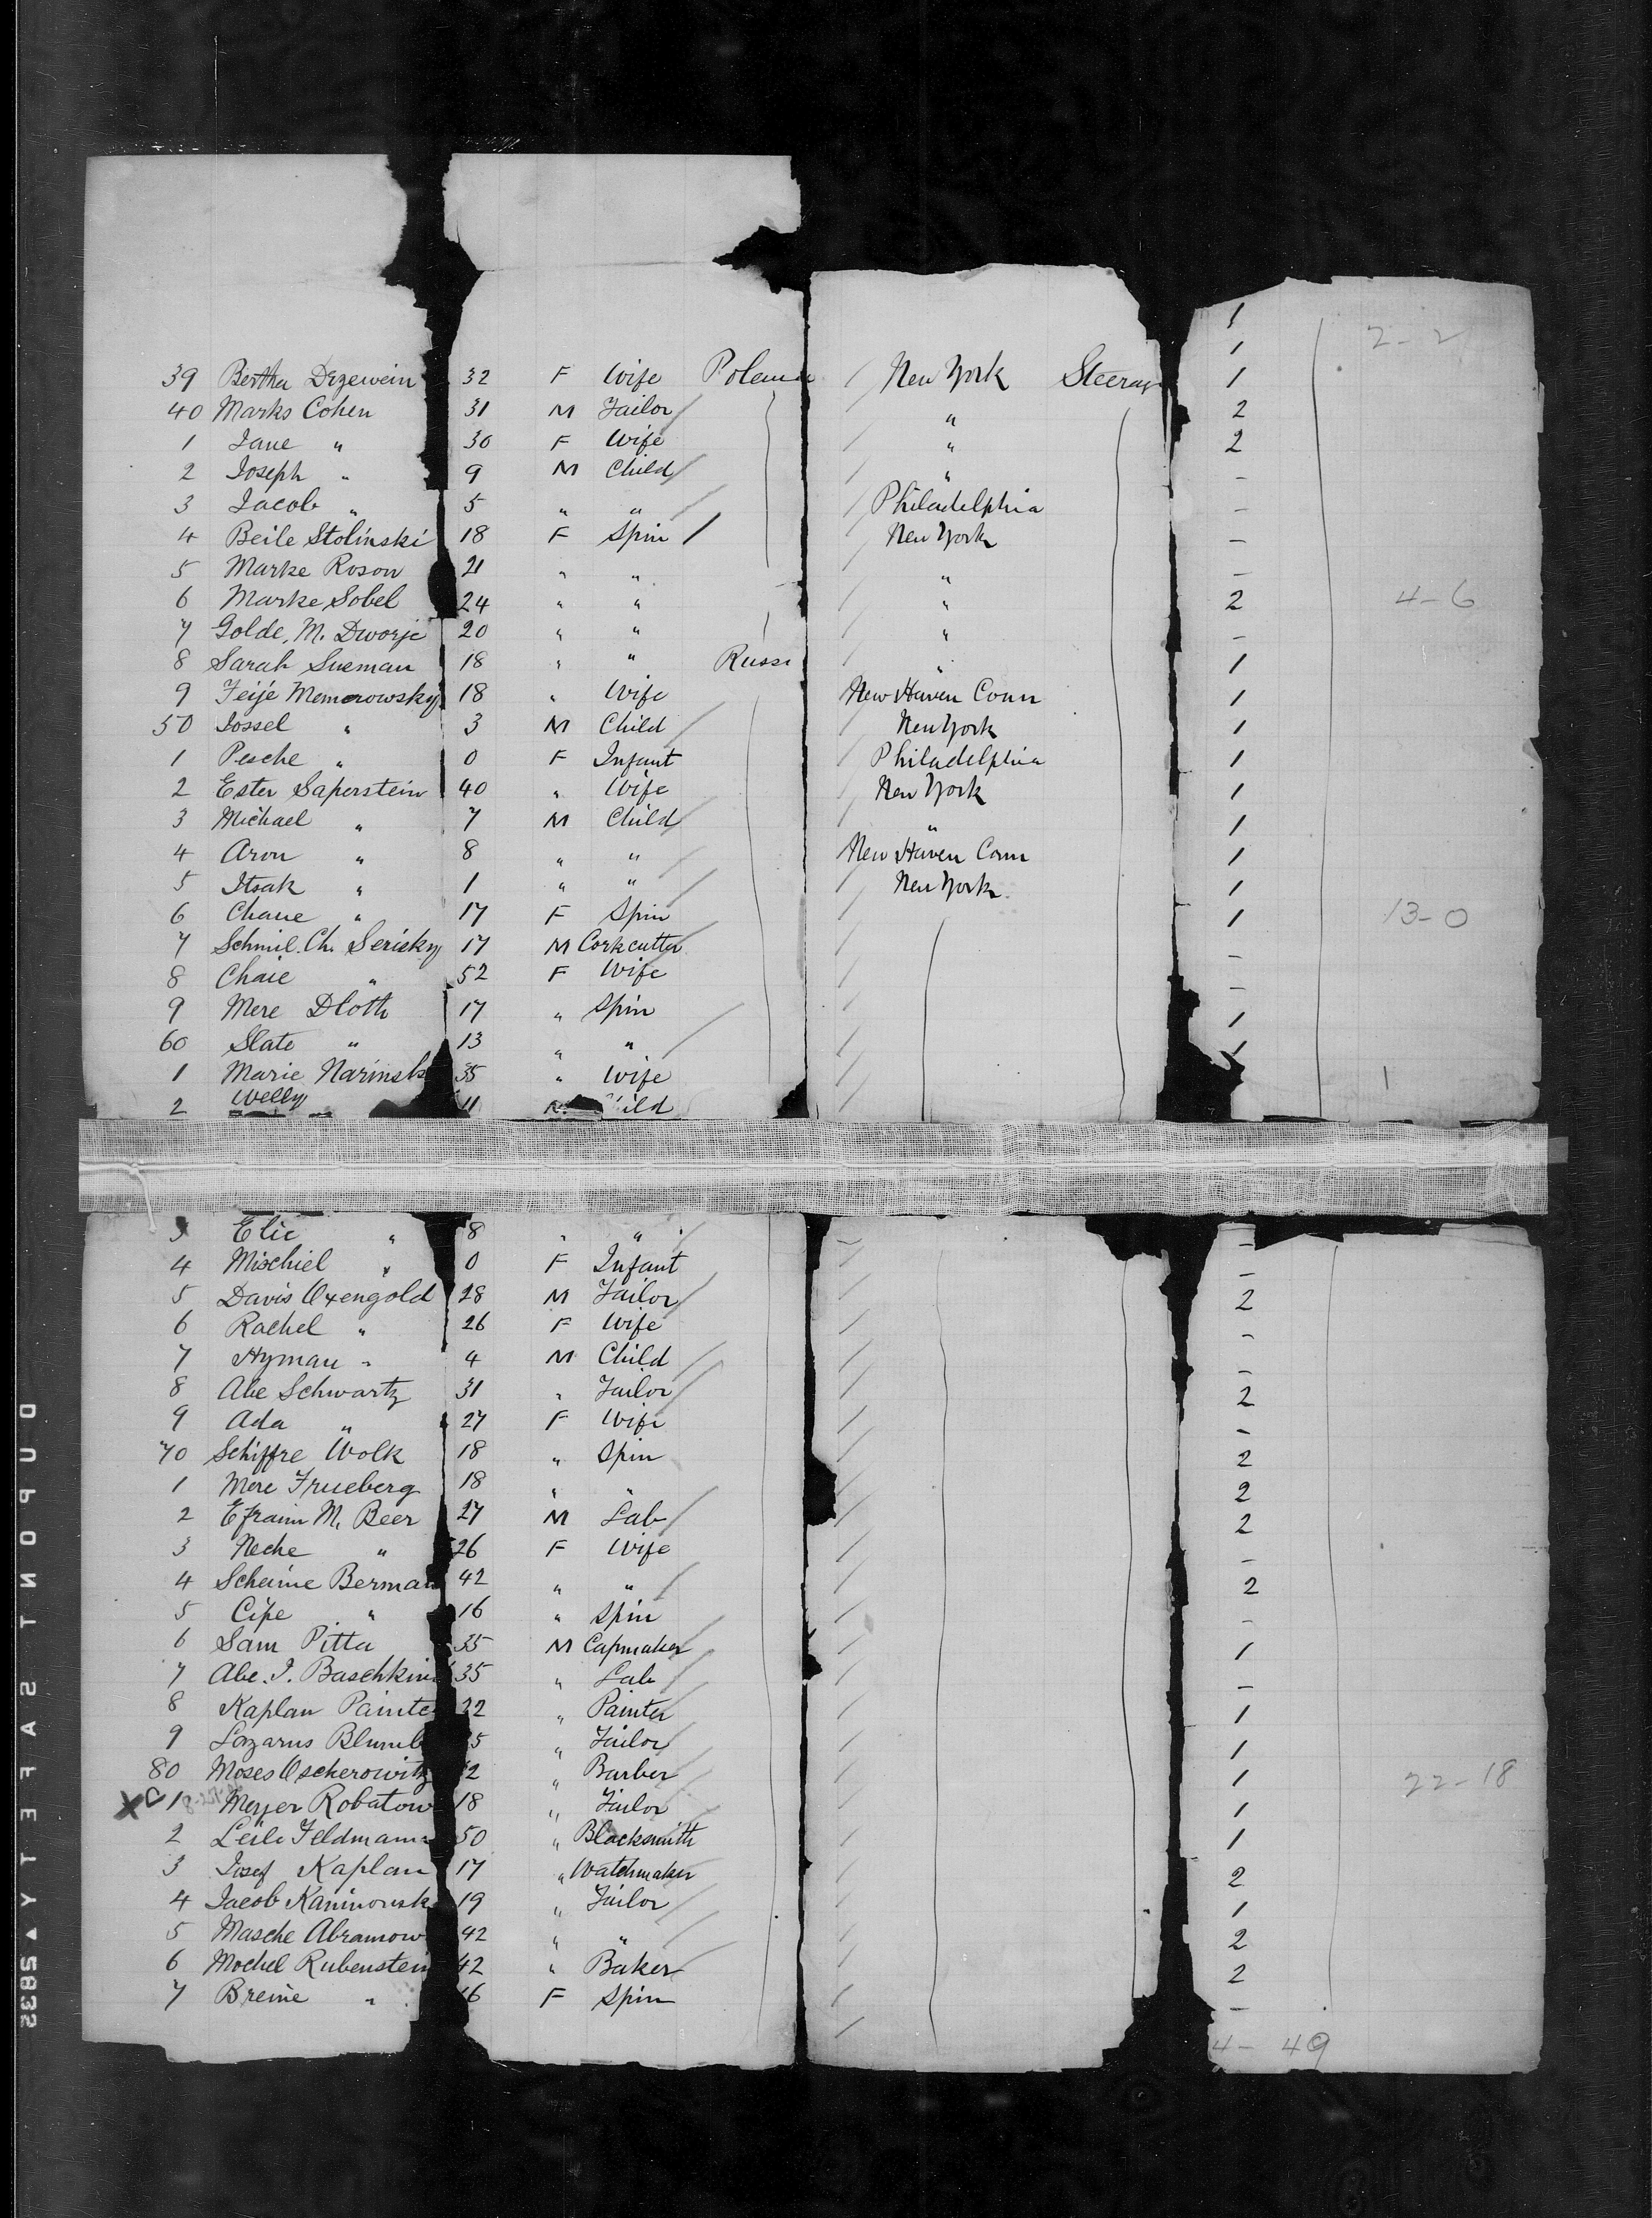 1
1 2-2
39 Bertha Drzewein 32 F Wife Polan / New York Steerage 1
40 Marks Cohen 31 M Tailor / " 2
1 Jane " 30 F Wife / " 2
2 Joseph " 9 M Child / " -
3 Jacob " 5 " " / Philadelphia -
4 Beile Stolinski 18 F Spin / New York -
5 Marke Roson 21 " " / " -
6 Marke Sobel 24 " " / " 2 4-6
7 Golde, M. Dworje 20 " " / " -
8 Sarah Sueman 18 " " Russi / " 1
9 Feije Memorowsky 18 " Wife New Haven Conn 1
50 Jossel " 3 M Child / New York 1
1 Pesche " 0 F Infant / Philadelphia 1
2 Ester Saperstein 40 " Wife / New York 1
3 Michael " 7 M Child / " 1
4 Aron " 8 " " New Haven Conn 1
5 Itsak " 1 " " / New York 1
6 Chane " 17 F Spin / 1 13-0
7 Schmil. Ch. Serisky 17 M Corkcutter / -
8 Chaie " 52 F Wife / -
9 Mere Dloth 17 " Spin / 1
60 Slate " 13 " " / 1
1 Marie Narinsk 35 " Wife / 1
2 Welly 11 ild /
3 Elie " 8 " " / -
4 Mischiel " 0 F Infant / -
5 Davis Oxengold 28 M Tailor / 2
6 Rachel " 26 F Wife / -
7 Hyman " 4 M Child / -
8 Abe Schwartz 31 " Tailor / 2
9 Ada " 27 F Wife / -
70 Schiffre Wolk 18 " Spin / 2
1 Mere Frueberg 18 " " / 2
2 Efraim M. Beer 27 M Lab / 2
3 Neche " 26 F Wife / -
4 Scheine Berman 42 " " / 2
5 Cipe " 16 " Spin / -
6 Sam Pitta 35 M Capmaker / 1
7 Abe. I. Baschkin 35 " Lab / -
8 Kaplan Painte 22 " Painter / 1
9 Lazarus Blumb 5 " Tailor / 1
80 Moses Oscherowitz 2 " Barber / 1 22-18
X 1 Meyer Robatow 18 " Tailor / 1
2 Leile Feldmann 50 " Blacksmith / 1
3 Josef Kaplan 17 " Watchmaker / 2
4 Jacob Kaminowsk 19 " Tailor / 1
5 Masche Abramow 42 " " / 2
6 Mochel Rubenstein 42 " Baker / 2
7 Breine " 16 F Spin / -
4- 49
DUPONT SAFETY ▲ 5833